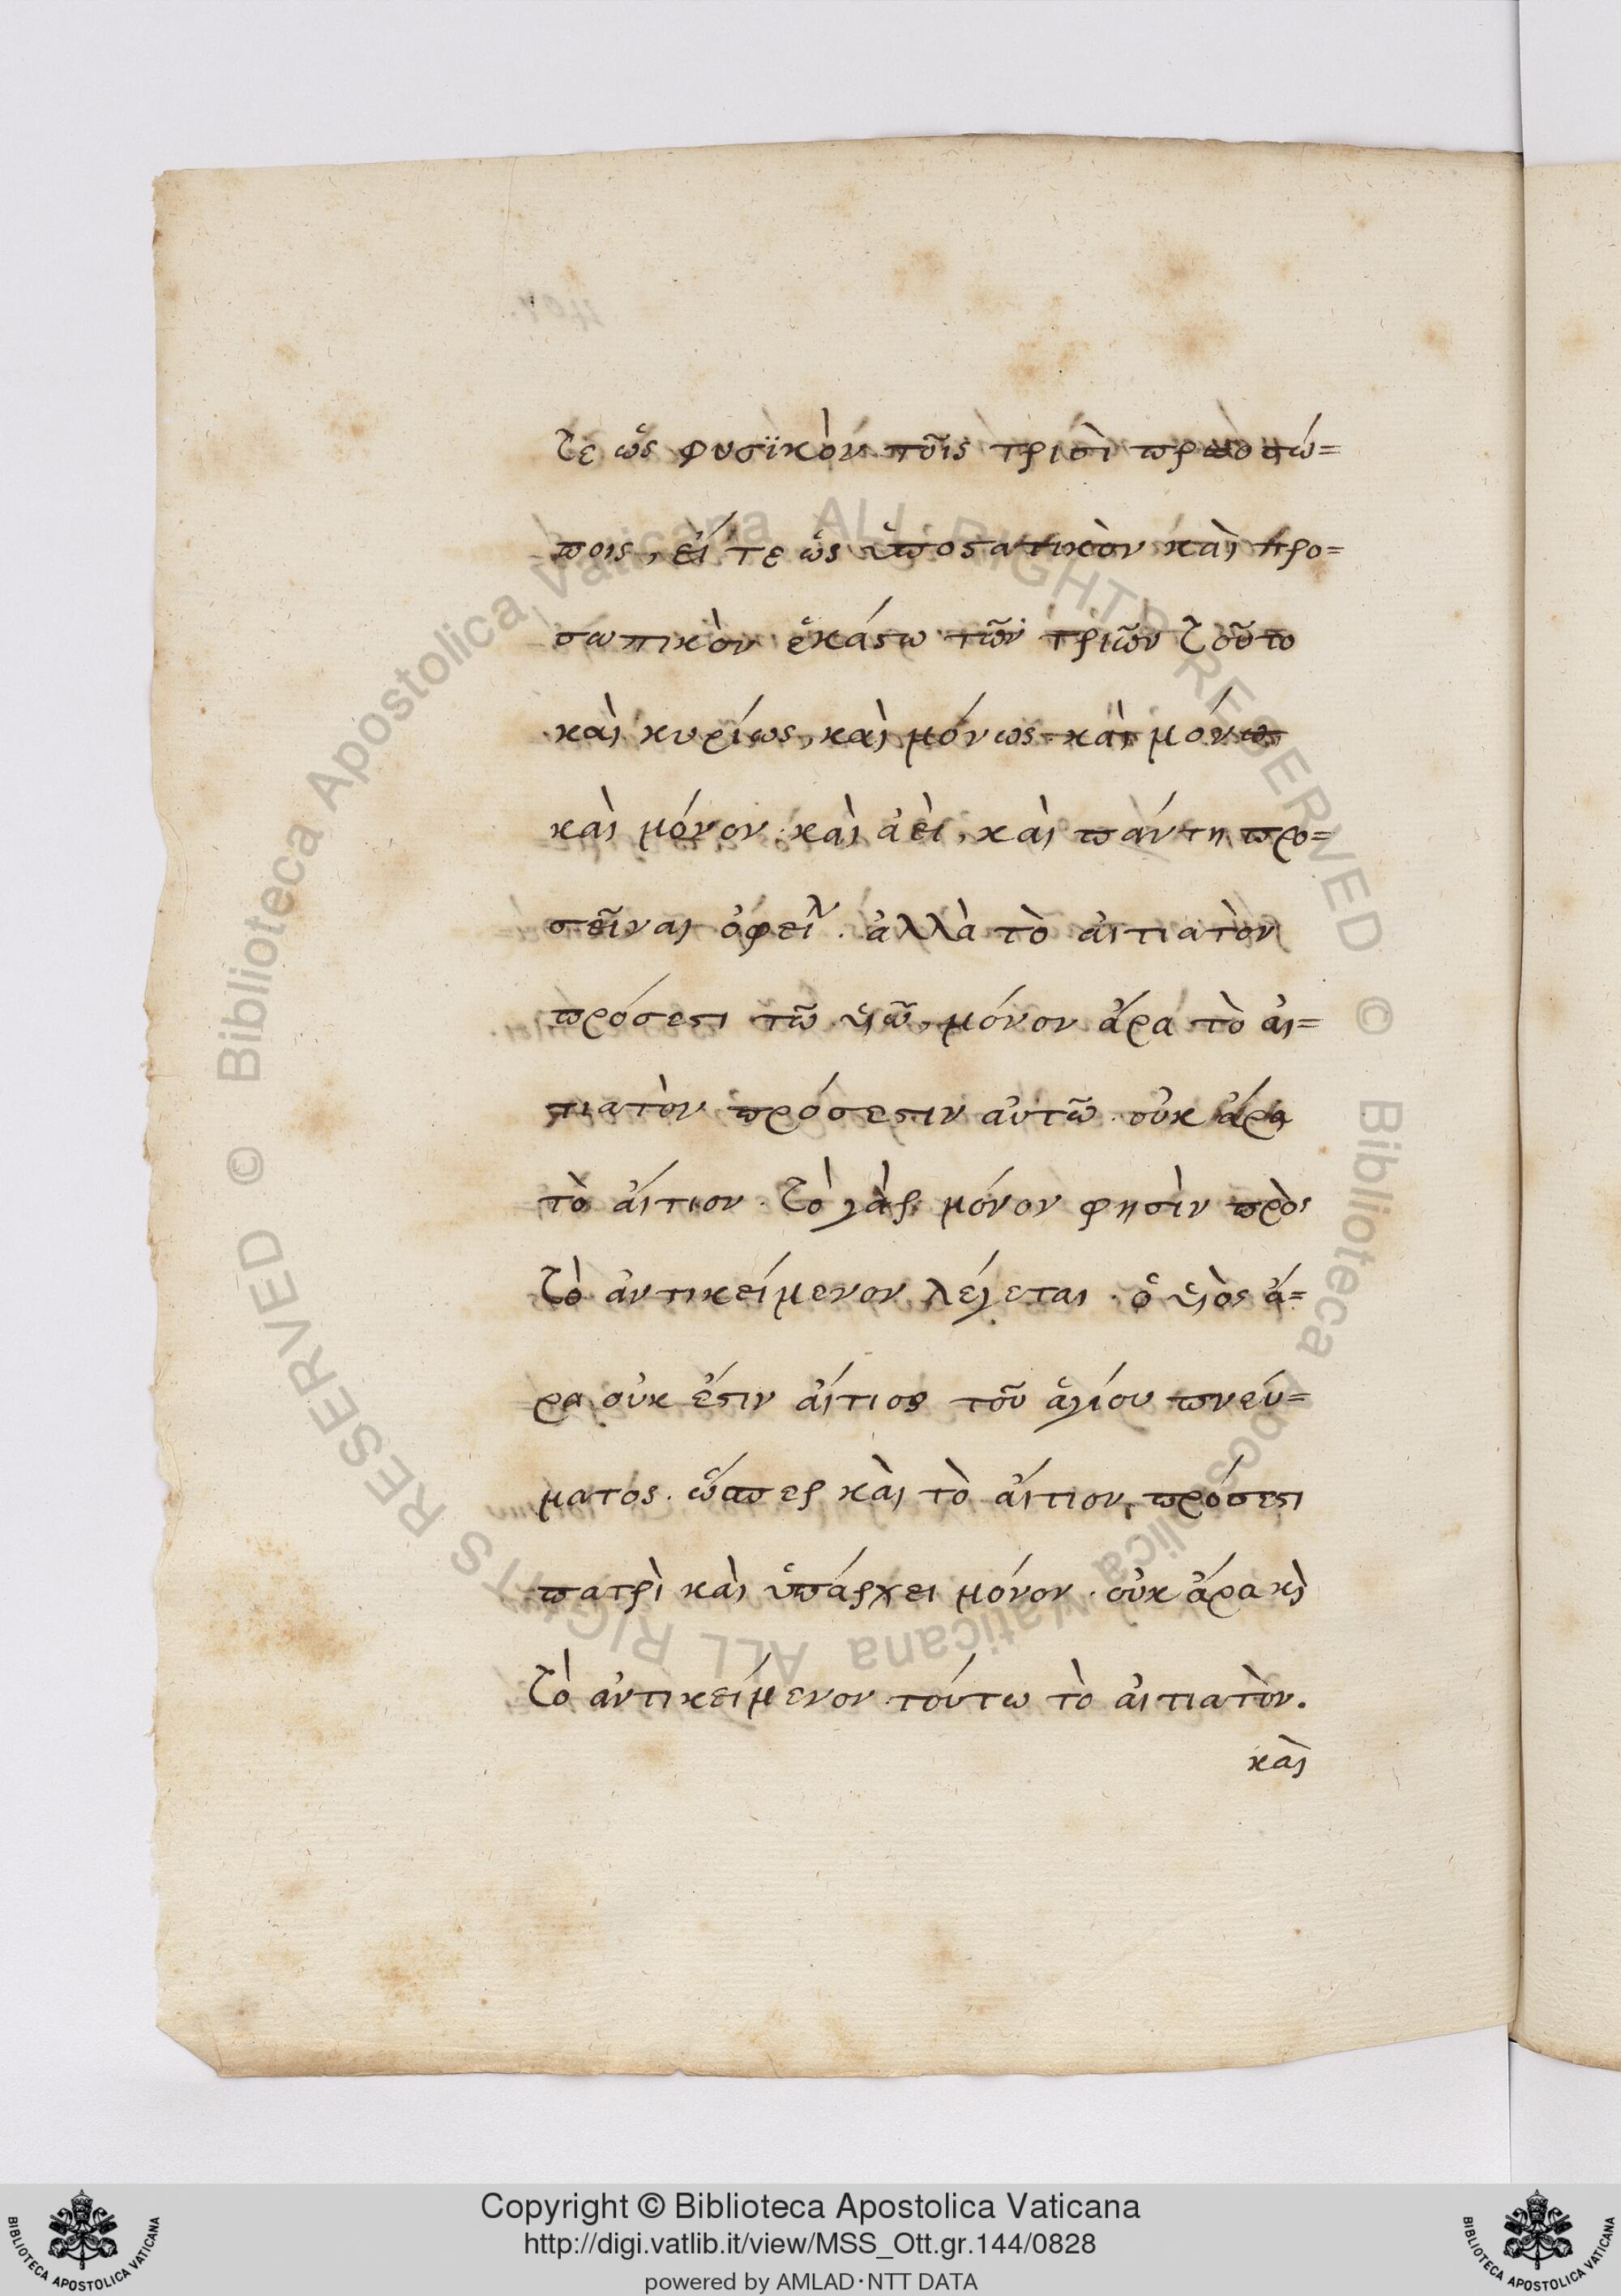 τε ὡς φυσϊκὸν τοῖς τρισὶ προσώ=
ποις, εἴ τε ὡς ὑποστατικὸν καὶ προ=
σωπικὸν ἑκάστω τῶν τριῶν τοῦτο
καὶ κυρίως, καὶ μόνως καὶ μόνω
καὶ μόνον καὶ ἀεὶ, καὶ πάντη προ=
σεῖναι ὀφείλ. ἀλλὰ τὸ αἰτιατὸν
πρόσεστι τῶ υἱῶ, μόνον ἄρα τὸ αἰ=
τιατὸν πρόσεστιν αὐτῶ. οὐκ ἄρα
τὸ αἴτιον. τὸ γὰρ μόνον φησὶν πρὸς
τὸ ἀντικείμενον λέγεται. ὁ υἱὸς ἄ=
ρα οὐκ ἔστιν αἴτιος τοῦ ἁγίου πνεύ=
ματος. ὥσπερ καὶ τὸ αἴτιον, πρόσεστι
πατρὶ καὶ ὑπάρχει μόνον. οὐκ ἄρα κὶ
τὸ ἀντικείμενον τούτω τὸ αἰτιατὸν.
καὶ
Copyright © Biblioteca Apostolica Vaticana
http://digi.vatlib.it/view/MSS_Ott.gr.144/0828
powered by AMLAD·NTT DATA
BIBLIOTECA APOSTOLICA VATICANA
BIBLIOTECA APOSTOLICA VATICANA
© Biblioteca Apostolica Vaticana ALL RIGHTS RESERVED © Biblioteca Apostolica Vaticana ALL RIGHTS RESERVED